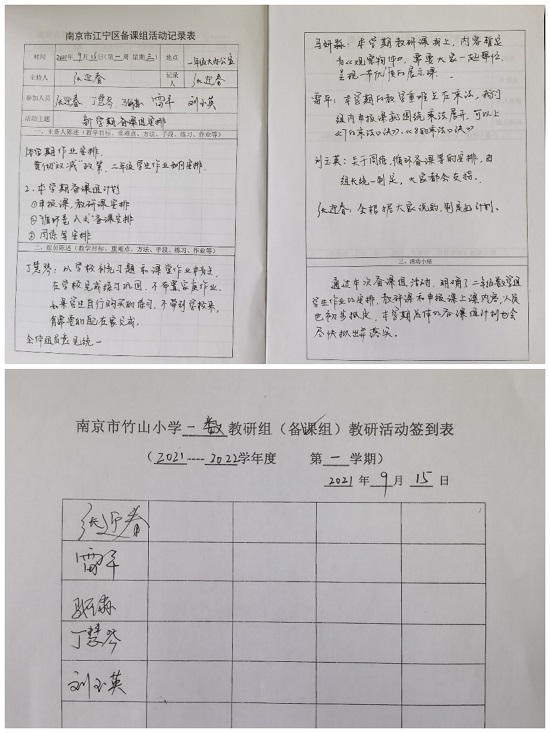 南京市江宁区备课组活动记录表
时间 2021年9月15日(第一周 星期三) 地点 二年级大办公室
主持人 张迎春 记录人 张迎春
参加人员 张迎春 丁慧琴 雷平 刘玉英
活动主题 新学期备课组安排
一、主备人陈述(教学目标、重难点、方法、手段、练习、作业等)
1.本学期作业安排.
贯彻"双减"政策,二年级学生作业如何安排.
2.本学期备课组计划
①申报课,教研课安排
②循环备、人人备课安排
③周练等安排
二、组员陈述(教学目标、重难点、方法、手段、练习、作业等)
丁慧琴:以学校补充习题和课堂作业本为主,
在学校完成练习巩固,不布置家庭作业.
如果学生自行购买的练习,不带到学校来,
有需要的配在家完成.
全体组员意见统一
本学期教研课我上,内容暂定
为《观察物体》,需要大家一起帮忙,
呈现一节优质的展示课.
雷平:本学期的教学重难点在乘法,我们
组内申报课就围绕乘法展开,可以上
《7的乘法口诀》、《8的乘法口诀》
刘玉英:关于周练,循环备课等的安排,由
组长统一制定,大家都会支持.
张迎春:会根据大家说的,制定出计划.
三、活动小结
通过本次备课组活动,明确了二年级数学组
学生作业的安排,教研课和申报课上课内容,人员
也初步拟定,本学期总体的备课组计划也会
尽快拟出并落实.
南京市竹山小学 二数 教研组(备课组)教研活动签到表
( 2021----2022学年度 第 一 学期)
2021 年 9 月 15 日
张迎春
雷平
丁慧琴
刘玉英